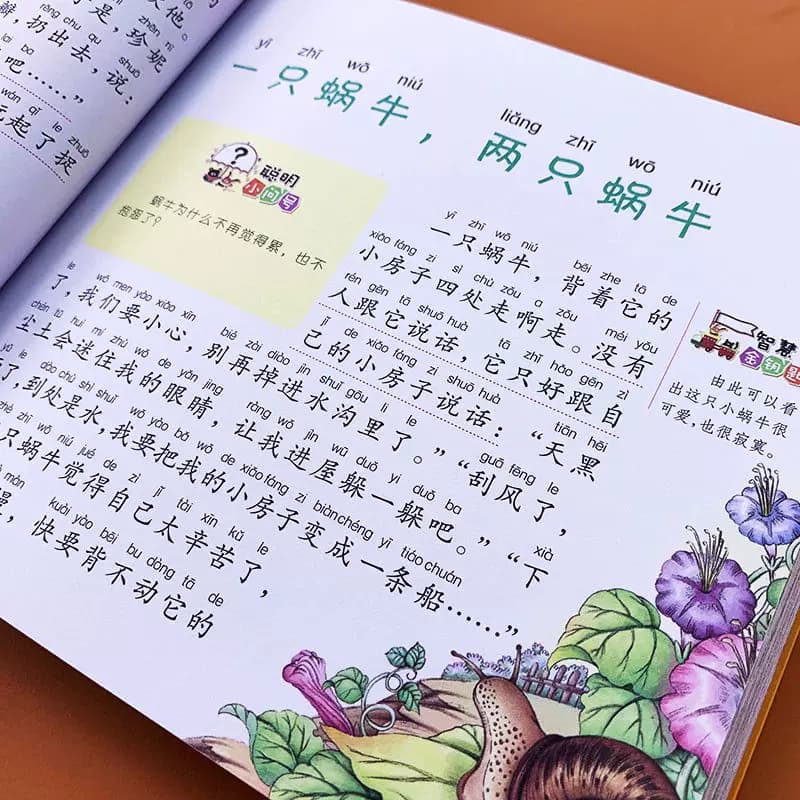 次他。
zhēn nī
于是，珍妮
rēng chu qu shuō
瓣，扔出去，说：
ba
吧……”
wán qǐ le zhuō
玩起了捉
yì zhī wō niú
一只蜗牛，
liǎng zhī wō niú
两只蜗牛
聪明
小问号
蜗牛为什么不再觉得累，也不
抱怨了？
yì zhī wō niú bēi zhe tā de
一只蜗牛，背着它的
xiǎo fáng zi sì chù zǒu a zǒu méi yǒu
小房子四处走啊走。没有
rén gēn tā shuō huà tā zhǐ hǎo gēn zì
人跟它说话，它只好跟自
jǐ de xiǎo fáng zi shuō huà tiān hēi
己的小房子说话：“天黑
le wǒ men yào xiǎo xīn bié zài diào jìn shuǐ gōu li le guā fēng le
了，我们要小心，别再掉进水沟里了。”“刮风了，
chén tǔ huì mí zhù wǒ de yǎn jing ràng wǒ jìn wū duǒ yi duǒ ba xià
尘土会迷住我的眼睛，让我进屋躲一躲吧。”“下
yǔ le dào chù shì shuǐ wǒ yào bǎ wǒ de xiǎo fáng zi biàn chéng yì tiáo chuán
了，到处是水，我要把我的小房子变成一条船……”
zhī wō niú jué de zì jǐ tài xīn kǔ le
只蜗牛觉得自己太辛苦了，
màn kuài yào bēi bu dòng tā de
慢，快要背不动它的
智慧
金钥匙
由此可以看
出这只小蜗牛很
可爱，也很寂寞。